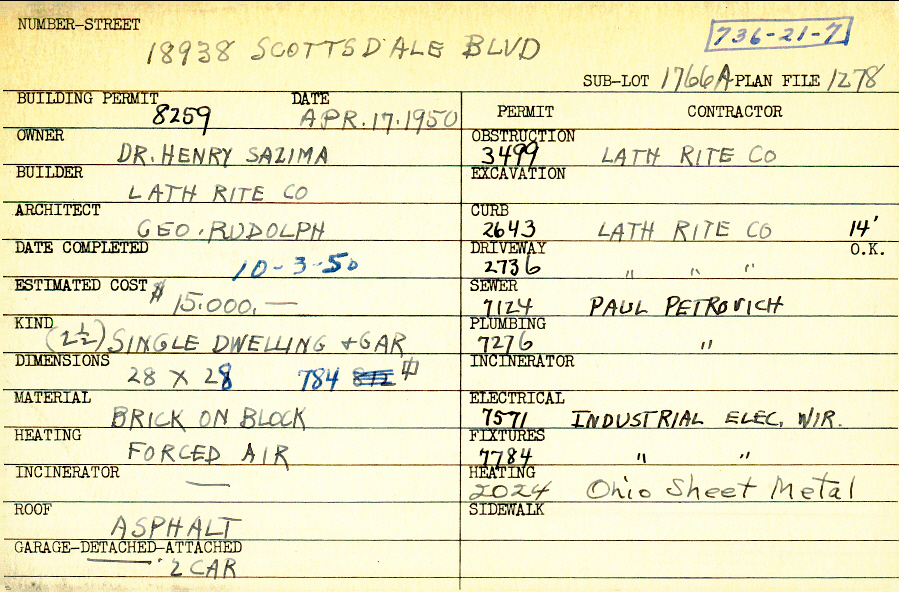 NUMBER-STREET
18938 SCOTTSDALE BLVD
736-21-7
SUB-LOT 1766A PLAN FILE 1278
BUILDING PERMIT 8259 DATE APR.17.1950
OWNER DR. HENRY SAZIMA
BUILDER LATH RITE CO
ARCHITECT GEO. RUDOLPH
DATE COMPLETED 10-3-50
ESTIMATED COST $15.000.—
KIND (2½) SINGLE DWELLING + GAR
DIMENSIONS 28 X 28 784
MATERIAL BRICK ON BLOCK
HEATING FORCED AIR
INCINERATOR —
ROOF ASPHALT
GARAGE-DETACHED-ATTACHED
2 CAR
PERMIT CONTRACTOR
OBSTRUCTION 3499 LATH RITE CO
EXCAVATION
CURB 2643 LATH RITE CO 14'
DRIVEWAY 2736 " " " O.K.
SEWER 7124 PAUL PETROVICH
PLUMBING 7276 "
INCINERATOR
ELECTRICAL 7571 INDUSTRIAL ELEC. WIR.
FIXTURES 7784 " "
HEATING 2024 Ohio Sheet Metal
SIDEWALK